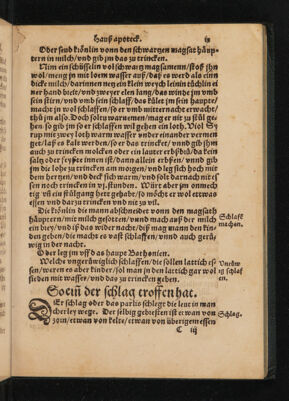 hauß apoteck. ix
Oder seud krönlin vonn den schwartzen magsat häup-
tern in milch/vnd gib jm das zu trincken.
Nim ein schüsselin vol schwartz magsamenn/stoß jhn
wol/meng jn mit loem wasser auff/daß es werd als einn
dicke milch/darinnen netz ein klein weych leinin tüchlin ei
ner hand breit/vnd zweyer elen lang/das winde jm vmb
sein stirn/vnd vmb sein schlaff/das kület jm sein haupt/
macht jn wol schlaffen/so er vmb mitternacht erwacht/
thů jm also. Doch soltu warnemen/mag er nit zu stůl ge-
hen so gib jm so er schlaffen wil gehen ein loth. Viol Sy
rup mit zwey loth warm wasser vnder einander vermen
get/laß es kalt werden/so er das trincket/vnnd gib jm
amm zu morgen oder zimmes ein lauter erbßbrü/da kein
saltz oder speck innen ist/dann allein erbßen/vnnd gib
jm die also zu trincken am morgen/vnd leg sich hoch mit
dem hertzen/vnd deck sich warm/vnd solt darnach nit es
sen noch trincken in vj.stunden. Würt aber jm onmech
tig vñ ein stůlgang hett gehabt/so möcht er wol etwas
essen vnd dar zu trincken vnd nit zu vil.
Die krönlin die mann abschneidet vonn den magsath
häuptern mit milch gesotten/vnnd mach auff der milch
ein brey/vnd iß das wider nacht/diß mag mann den kin
den geben/die macht es vast schlaffen/vnnd auch gerü-
wig in der nacht.
Schlaff
machen.
Oder leg jm vff das haupt Bathonien.
Welche vngerüwiglich schlaffen/die sollen lattich es-
sen/weren es aber kinder/sol man in den lattich gar wol
sieden mit wasser/vnd das zu trincken geben.
Vnrüw
ig schlaf
en.
So eim̃ der schlag troffen hat.
Der schlag oder das parlis schlegt die leut in man
cherley wege. Der selbig gebresten ist etwan von
zorn/etwan von kelte/etwan von überigem essen
Schlag.
C iij